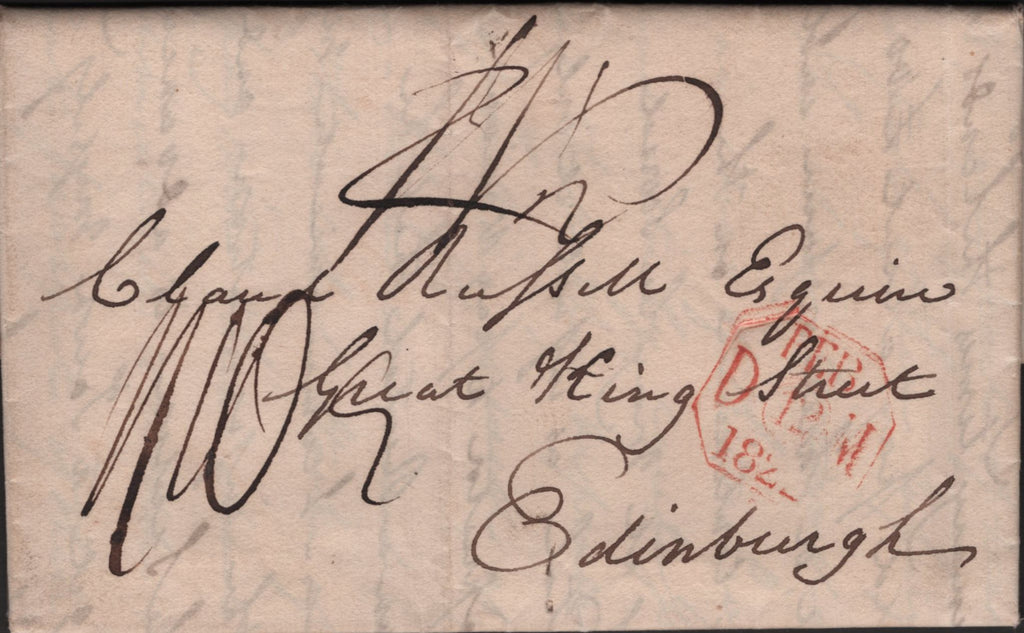 Russell Esquire
Great King Street
Edinburgh
FEB
D 12 M
182